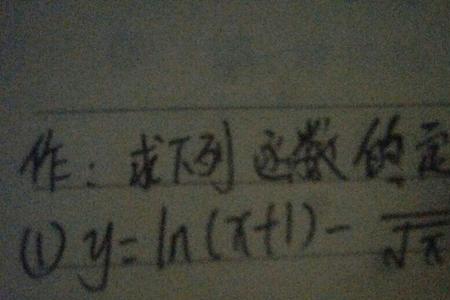 作：求下列函数的定
(1) y=ln(x+1)-